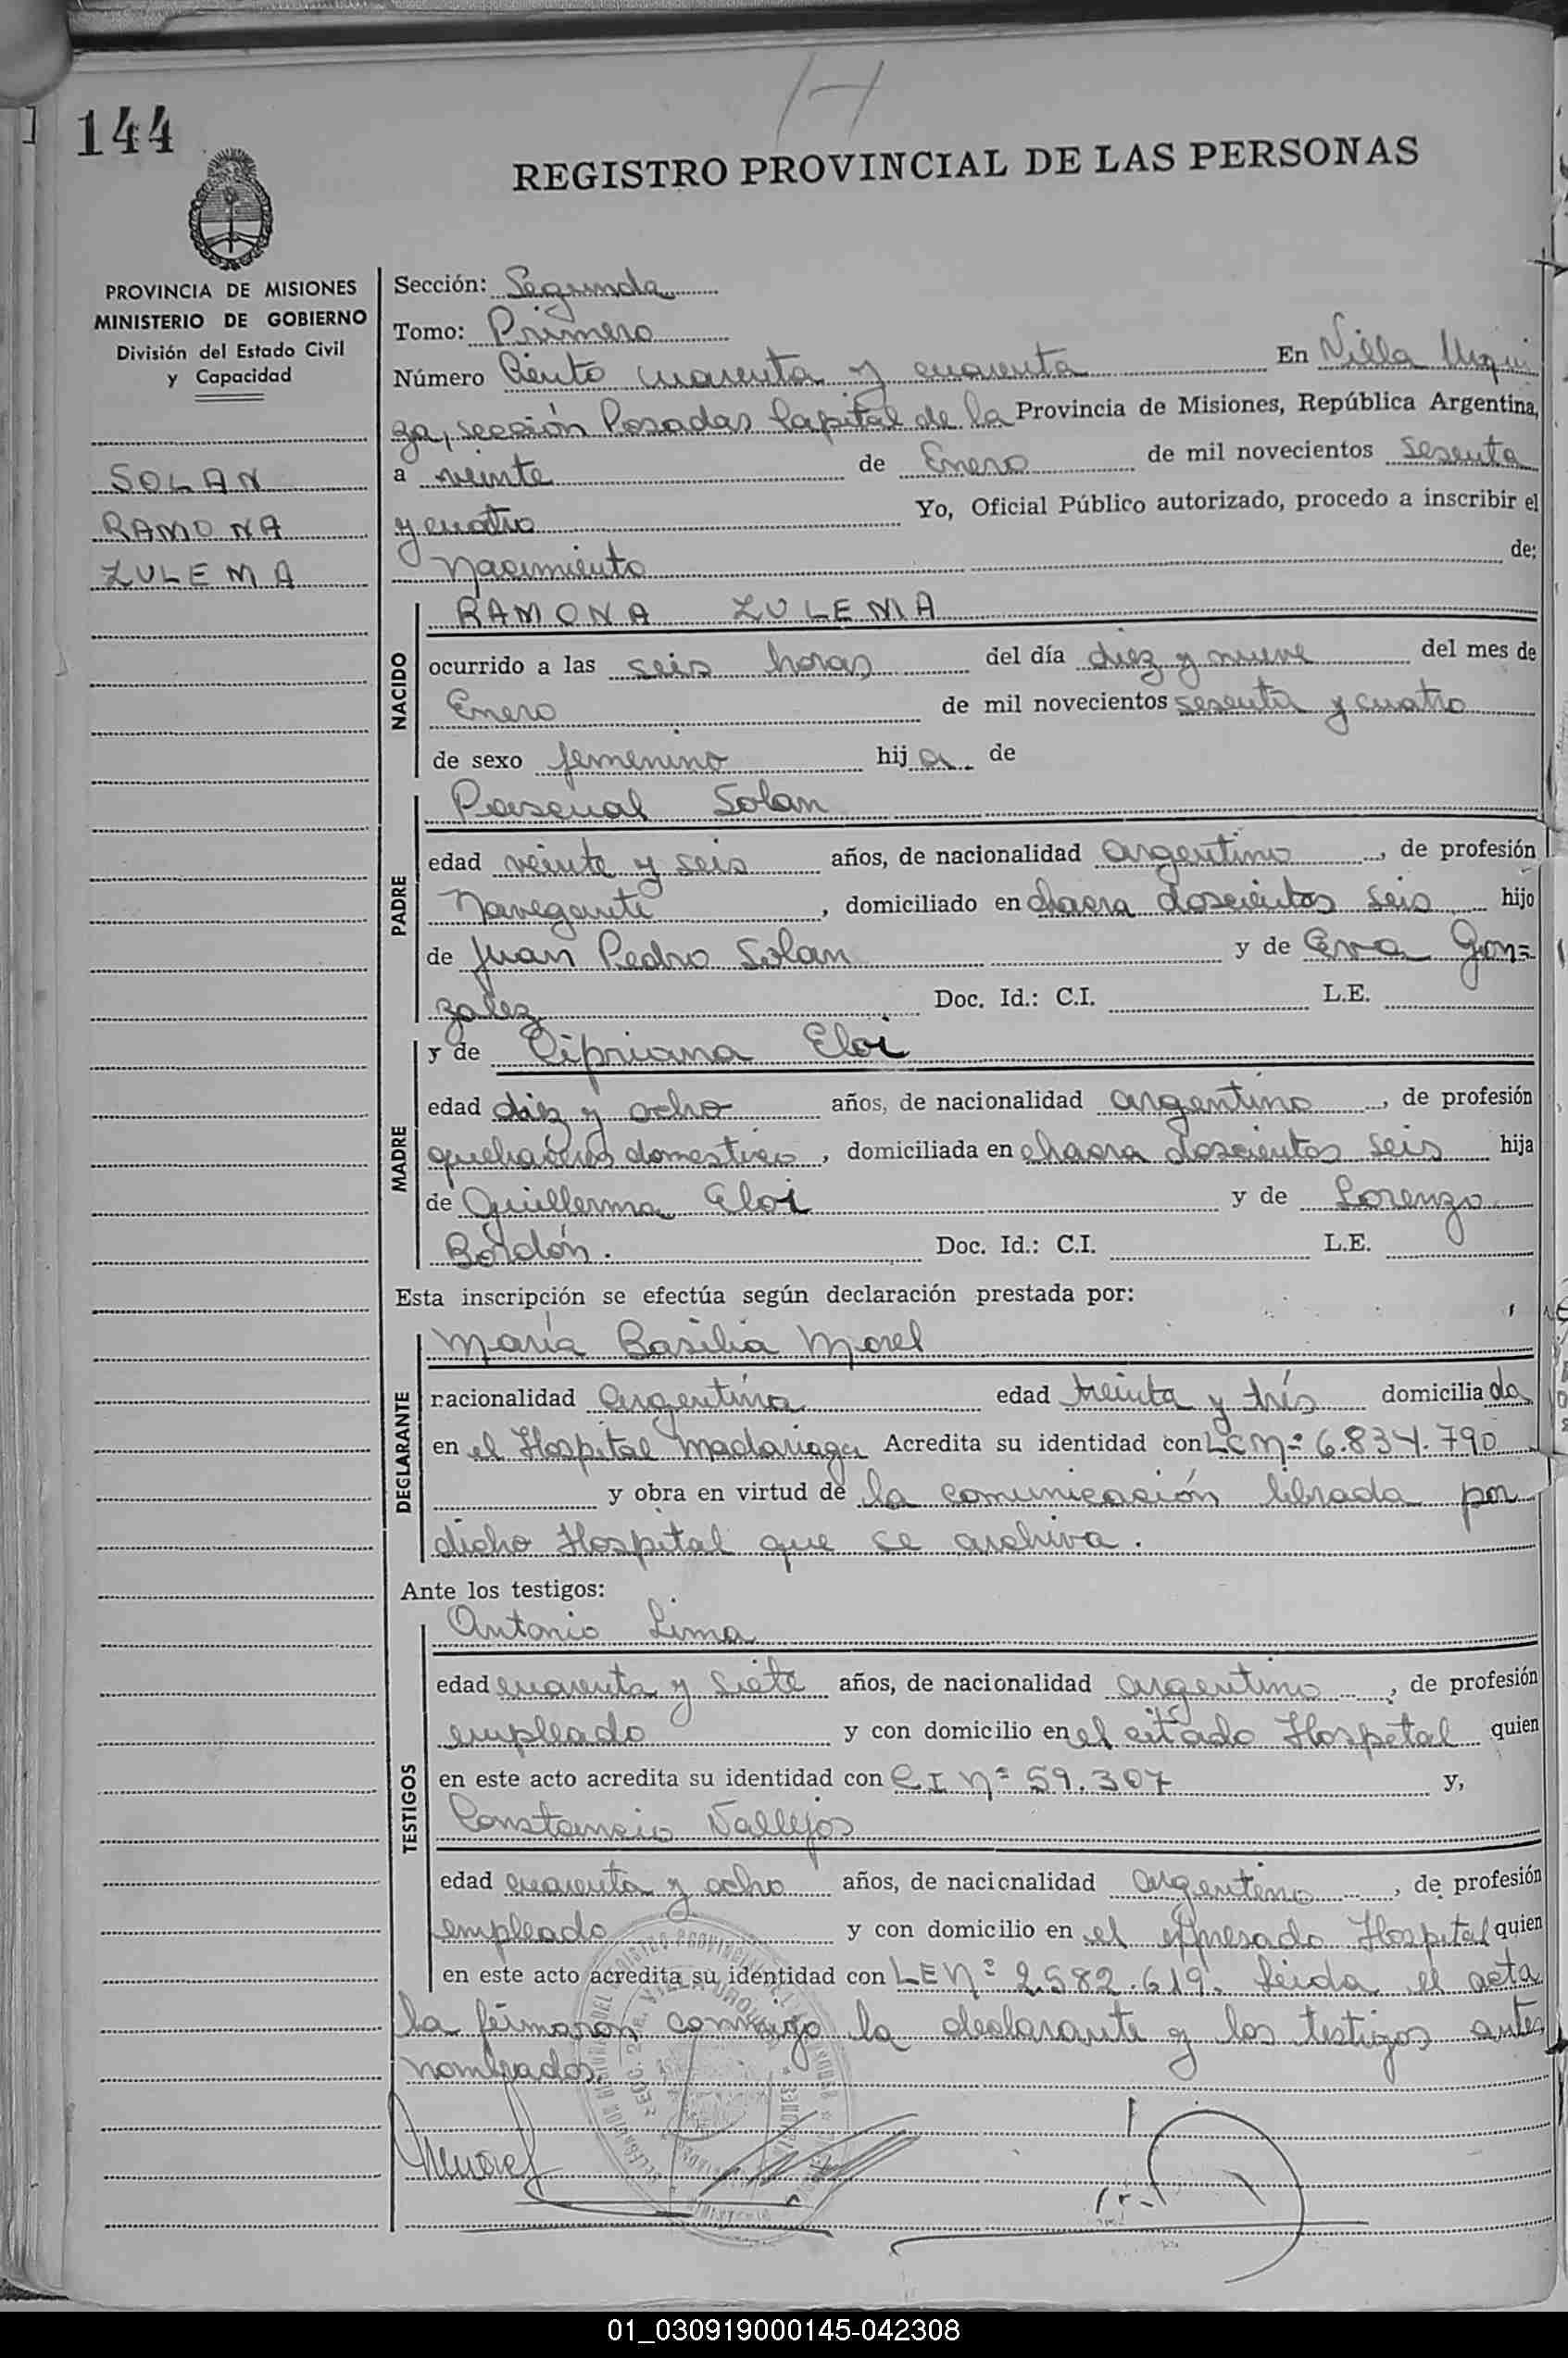 144
REGISTRO PROVINCIAL DE LAS PERSONAS
PROVINCIA DE MISIONES
MINISTERIO DE GOBIERNO
División del Estado Civil
y Capacidad
SOLAN
RAMONA
ZULEMA
Sección: Segunda
Tomo: Primero
Número Ciento cuarenta y cuarenta En Villa Urqui
za, sección Posadas Capital de la Provincia de Misiones, República Argentina,
a veinte de Enero de mil novecientos sesenta
y cuatro Yo, Oficial Público autorizado, procedo a inscribir el
Nacimiento de:
NACIDO
RAMONA ZULEMA
ocurrido a las seis horas del día diez y nueve del mes de
Enero de mil novecientos sesenta y cuatro
de sexo femenino hija de
PADRE
Pascual Solan
edad veinte y seis años, de nacionalidad argentino, de profesión
Navegante, domiciliado en chacra doscientos seis hijo
de Juan Pedro Solan y de Eva Gon=
zalez Doc. Id.: C.I. L.E.
MADRE
y de Cipriana Eloi
edad diez y ocho años, de nacionalidad argentina, de profesión
quehaceres domesticos, domiciliada en chacra doscientos seis hija
de Guillerma Eloi y de Lorenzo
Bordón. Doc. Id.: C.I. L.E.
Esta inscripción se efectúa según declaración prestada por:
DECLARANTE
María Basilia Morel
nacionalidad argentina edad treinta y trés domiciliada
en el Hospital Madariaga Acredita su identidad con LC Nº 6.834.790
y obra en virtud de la comunicación librada por
dicho Hospital que se archiva.
Ante los testigos:
TESTIGOS
Antonio Lima
edad cuarenta y siete años, de nacionalidad argentino, de profesión
empleado y con domicilio en el citado Hospital quien
en este acto acredita su identidad con C I Nº 59.307 y,
Constancio Vallejos
edad cuarenta y ocho años, de nacionalidad argentino, de profesión
empleado y con domicilio en el expresado Hospital quien
en este acto acredita su identidad con LE Nº 2.582.619. Leída el acta
la firmaron conmigo la declarante y los testigos antes
nombrados.
Morel
01_030919000145-042308